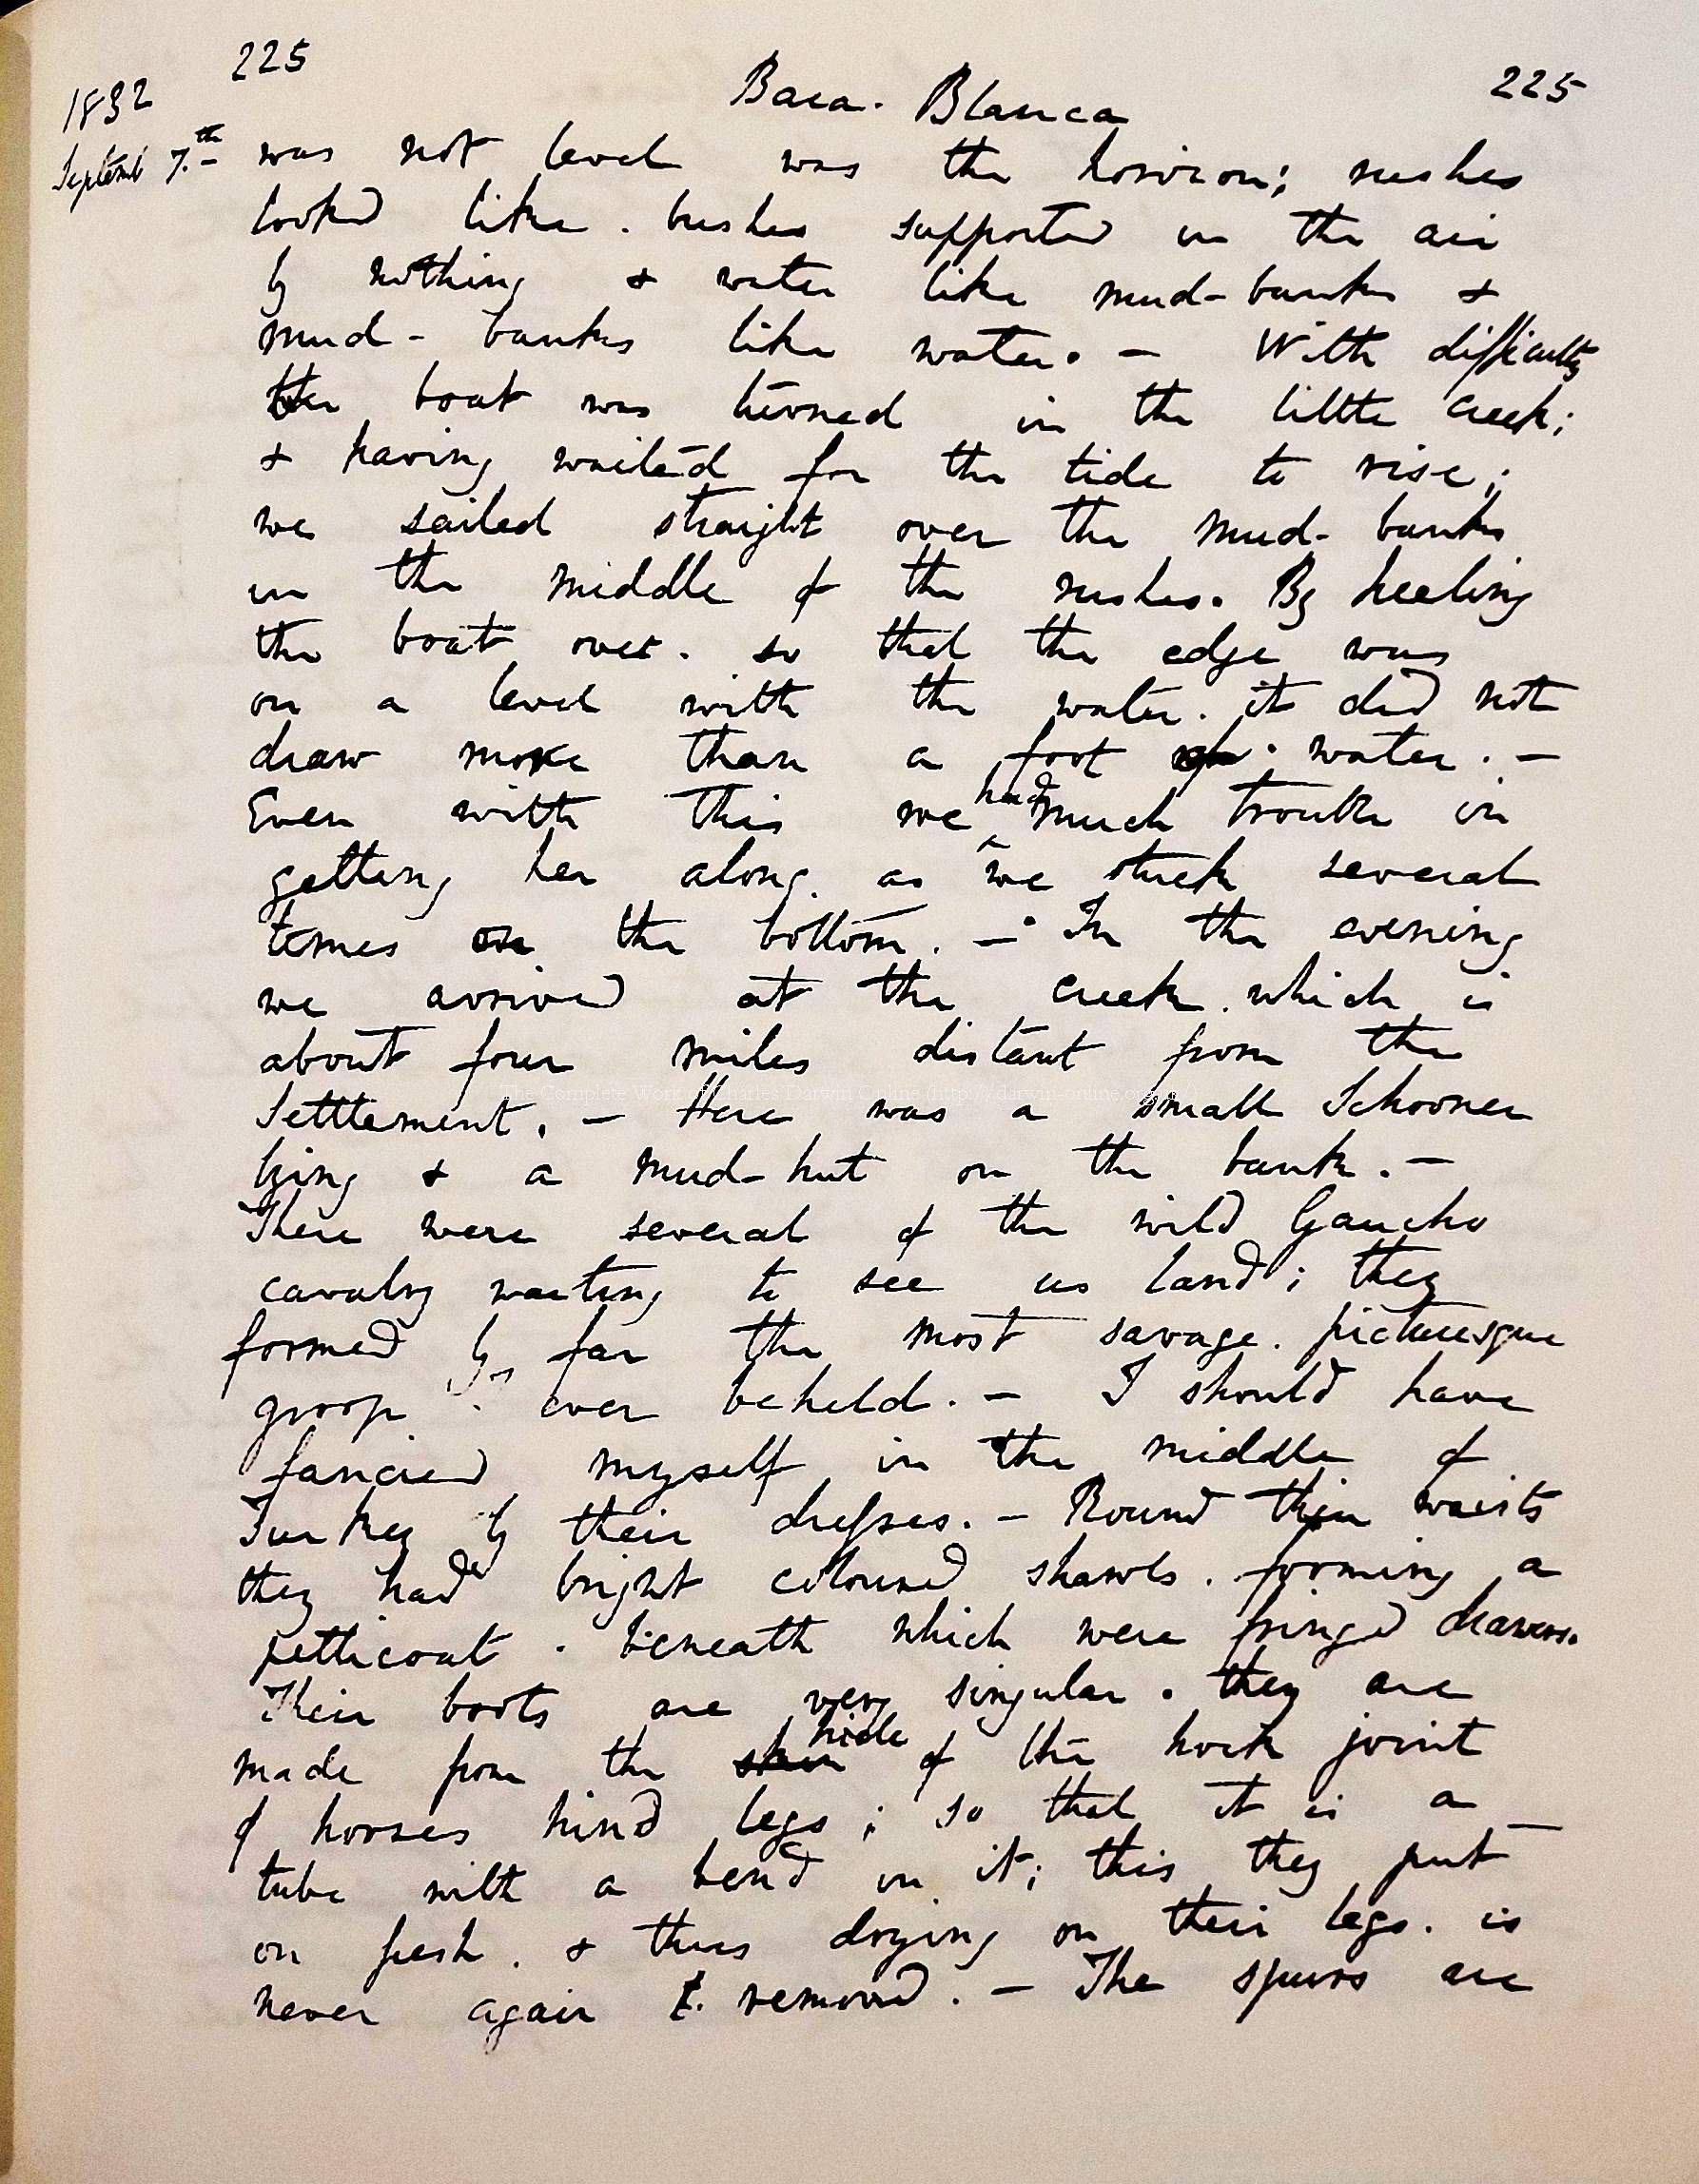 225
Baia. Blanca
225
1832
Septemb 7.th
was not level was the horizon; rushes
looked like. bushes supported in the air
by nothing & water like mud-banks &
mud-banks like water. — With difficulty
the boat was turned in the little creek;
& having waited for the tide to rise;
we sailed straight over the mud-banks
in the middle of the rushes. By heeling
the boat over. so that the edge was
on a level with the water. it did not
draw more than a foot of. water. —
Even with this we had much trouble in
getting her along. as we stuck several
times on the bottom. — In the evening
we arrived at the creek. which is
about four miles distant from the
Settlement. — Here was a small Schooner
lying & a mud-hut on the bank. —
There were several of the wild Gaucho
cavalry waiting to see us land; they
formed by far the most savage. picturesque
group I ever beheld. — I should have
fancied myself in the middle of
Turkey by their dresses. — Round their waists
they had bright coloured shawls. forming a
petticoat. beneath which were fringed drawers.
Their boots are very singular. they are
made from the skin hide of the hock joint
of horses hind legs; so that it is a
tube with a bend in it; this they put
on fresh. & thus drying on their legs. is
never again removed. — The spurs are